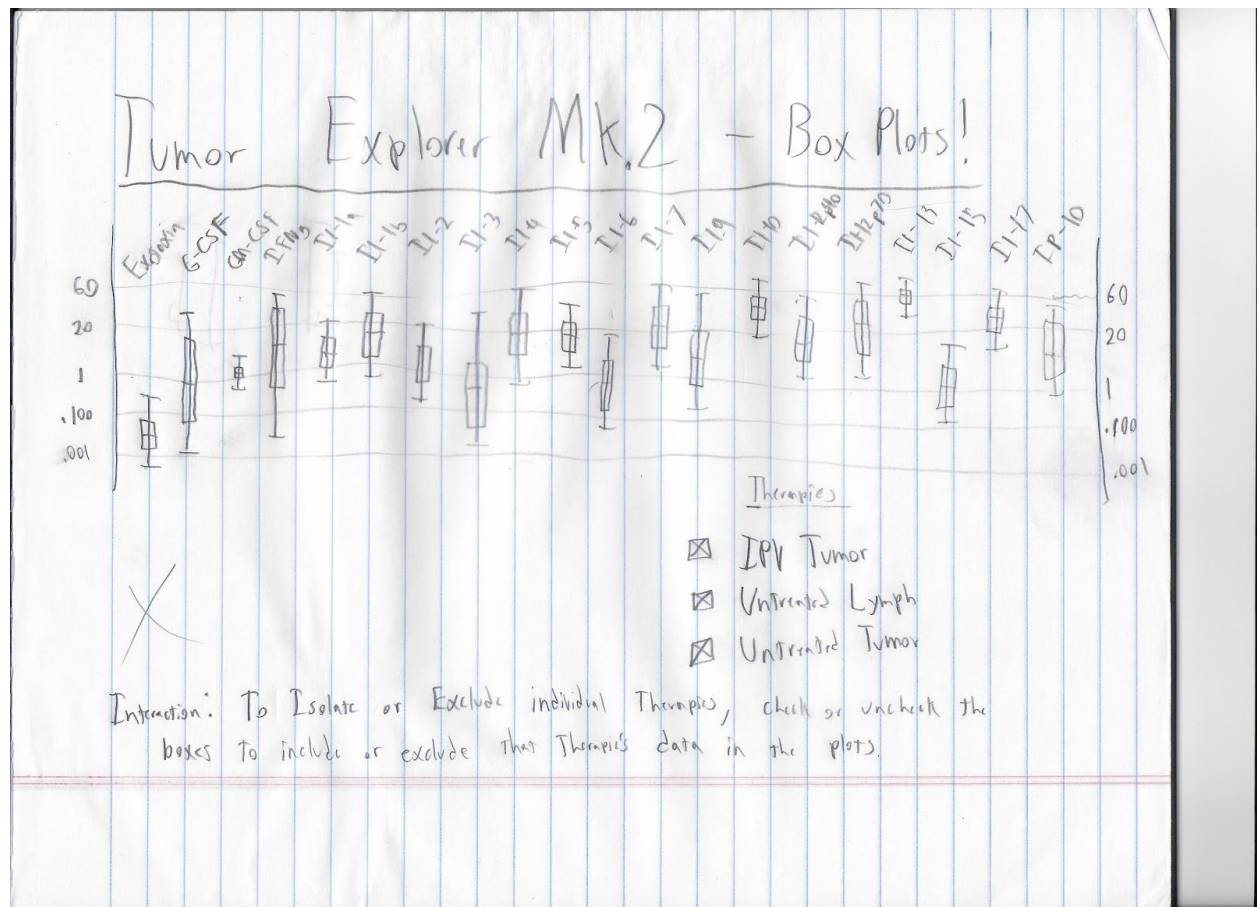 Tumor Explorer Mk.2 - Box Plots!
Exotaxin G-CSF Gm-CSF IFNg Il-1a Il-1b Il-2 Il-3 Il-4 Il-5 Il-6 Il-7 Il-9 Il-10 Il-12p40 Il-12p70 Il-13 Il-15 Il-17 IP-10
60 60
20 20
1 1
.100 .100
.001 .001
Therapies
IPV Tumor
Untreated Lymph
Untreated Tumor
Interaction: To Isolate or Exclude individual Therapies, check or uncheck the
boxes to include or exclude that Therapie's data in the plots.